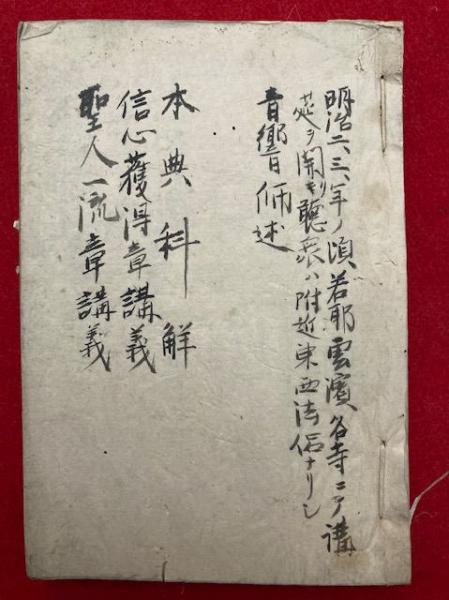 明治二、三、年ノ頃若耶雲濱各寺ニテ講
莚ヲ開キ聽衆ハ附近東西法侶ナリシ
音響師述
本典科解
信心獲得章講義
聖人一流章講義